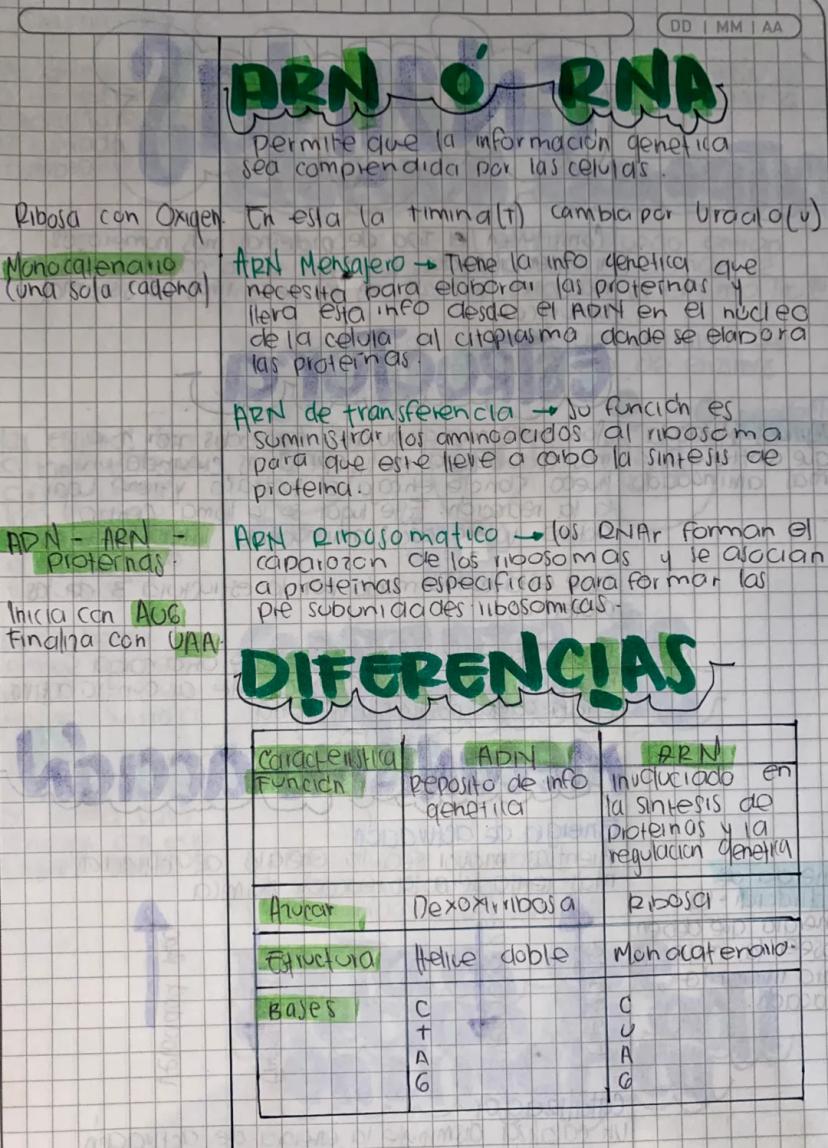 DD | MM | AA
ARN Ó RNA
Permite que la información genetica
sea comprendida por las celulas.
Ribosa con Oxigen
En esta la timina(T) cambia por Uracilo(U)
Monocatenario
(una sola cadena)
ARN Mensajero → Tiene la info genetica que
necesita para elaborar las proteinas y
lleva esta info desde el ADN en el núcleo
de la celula al citoplasma donde se elabora
las proteinas.
ARN de transferencia → Su función es
suministrar los aminoacidos al ribosoma
para que este lleve a cabo la sintesis de
proteina.
ADN - ARN -
Proteinas.
Inicia con AUG
Finaliza con UAA.
ARN Ribosomatico → los RNAr forman el
caparozon de los ribosomas y se asocian
a proteinas especificas para formar las
pre subunidades ribosomicas.
DIFERENCIAS
Caracteristica ADN ARN
Función
Deposito de info
genetica
Involuciado en
la sintesis de
proteinas y la
regulacion genetica
Azucar Dexoxirribosa Ribosa
Estructura Helice doble Monocatenario.
Bases
C
T
A
G
C
U
A
G